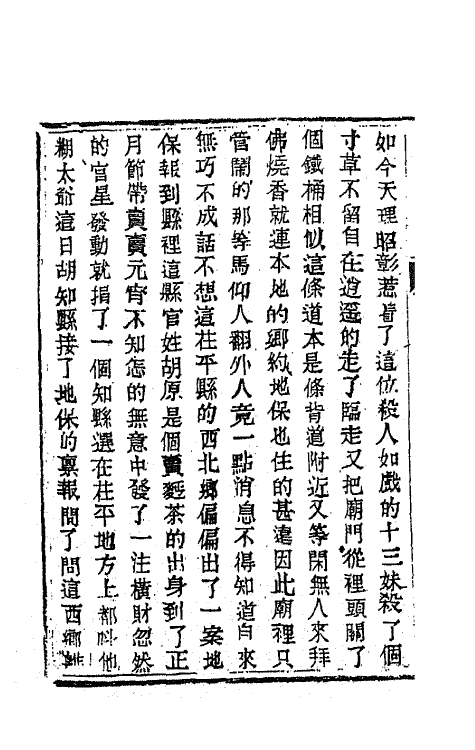 如今天理昭彰惹着了這位殺人如戲的十三妹殺了個
寸草不留自在逍遥的走了臨走又把廟門從裡頭關了
個鐵桶相似這條道本是條背道附近又等閑無人來拜
佛燒香就連本地的鄉約地保也住的甚遠因此廟裡只
管鬧的那等馬仰人翻外人竟一點消息不得知道自來
無巧不成話不想這茌平縣的西北鄉偏偏出了一案地
保報到縣裡這縣官姓胡原是個賣麫茶的出身到了正
月節帶賣賣元宵不知怎的無意中發了一注橫財忽然
的官星發動就捐了一個知縣選在茌平地方上都呌他
糊太爺這日胡知縣接了地保的禀報問了問這西鄉